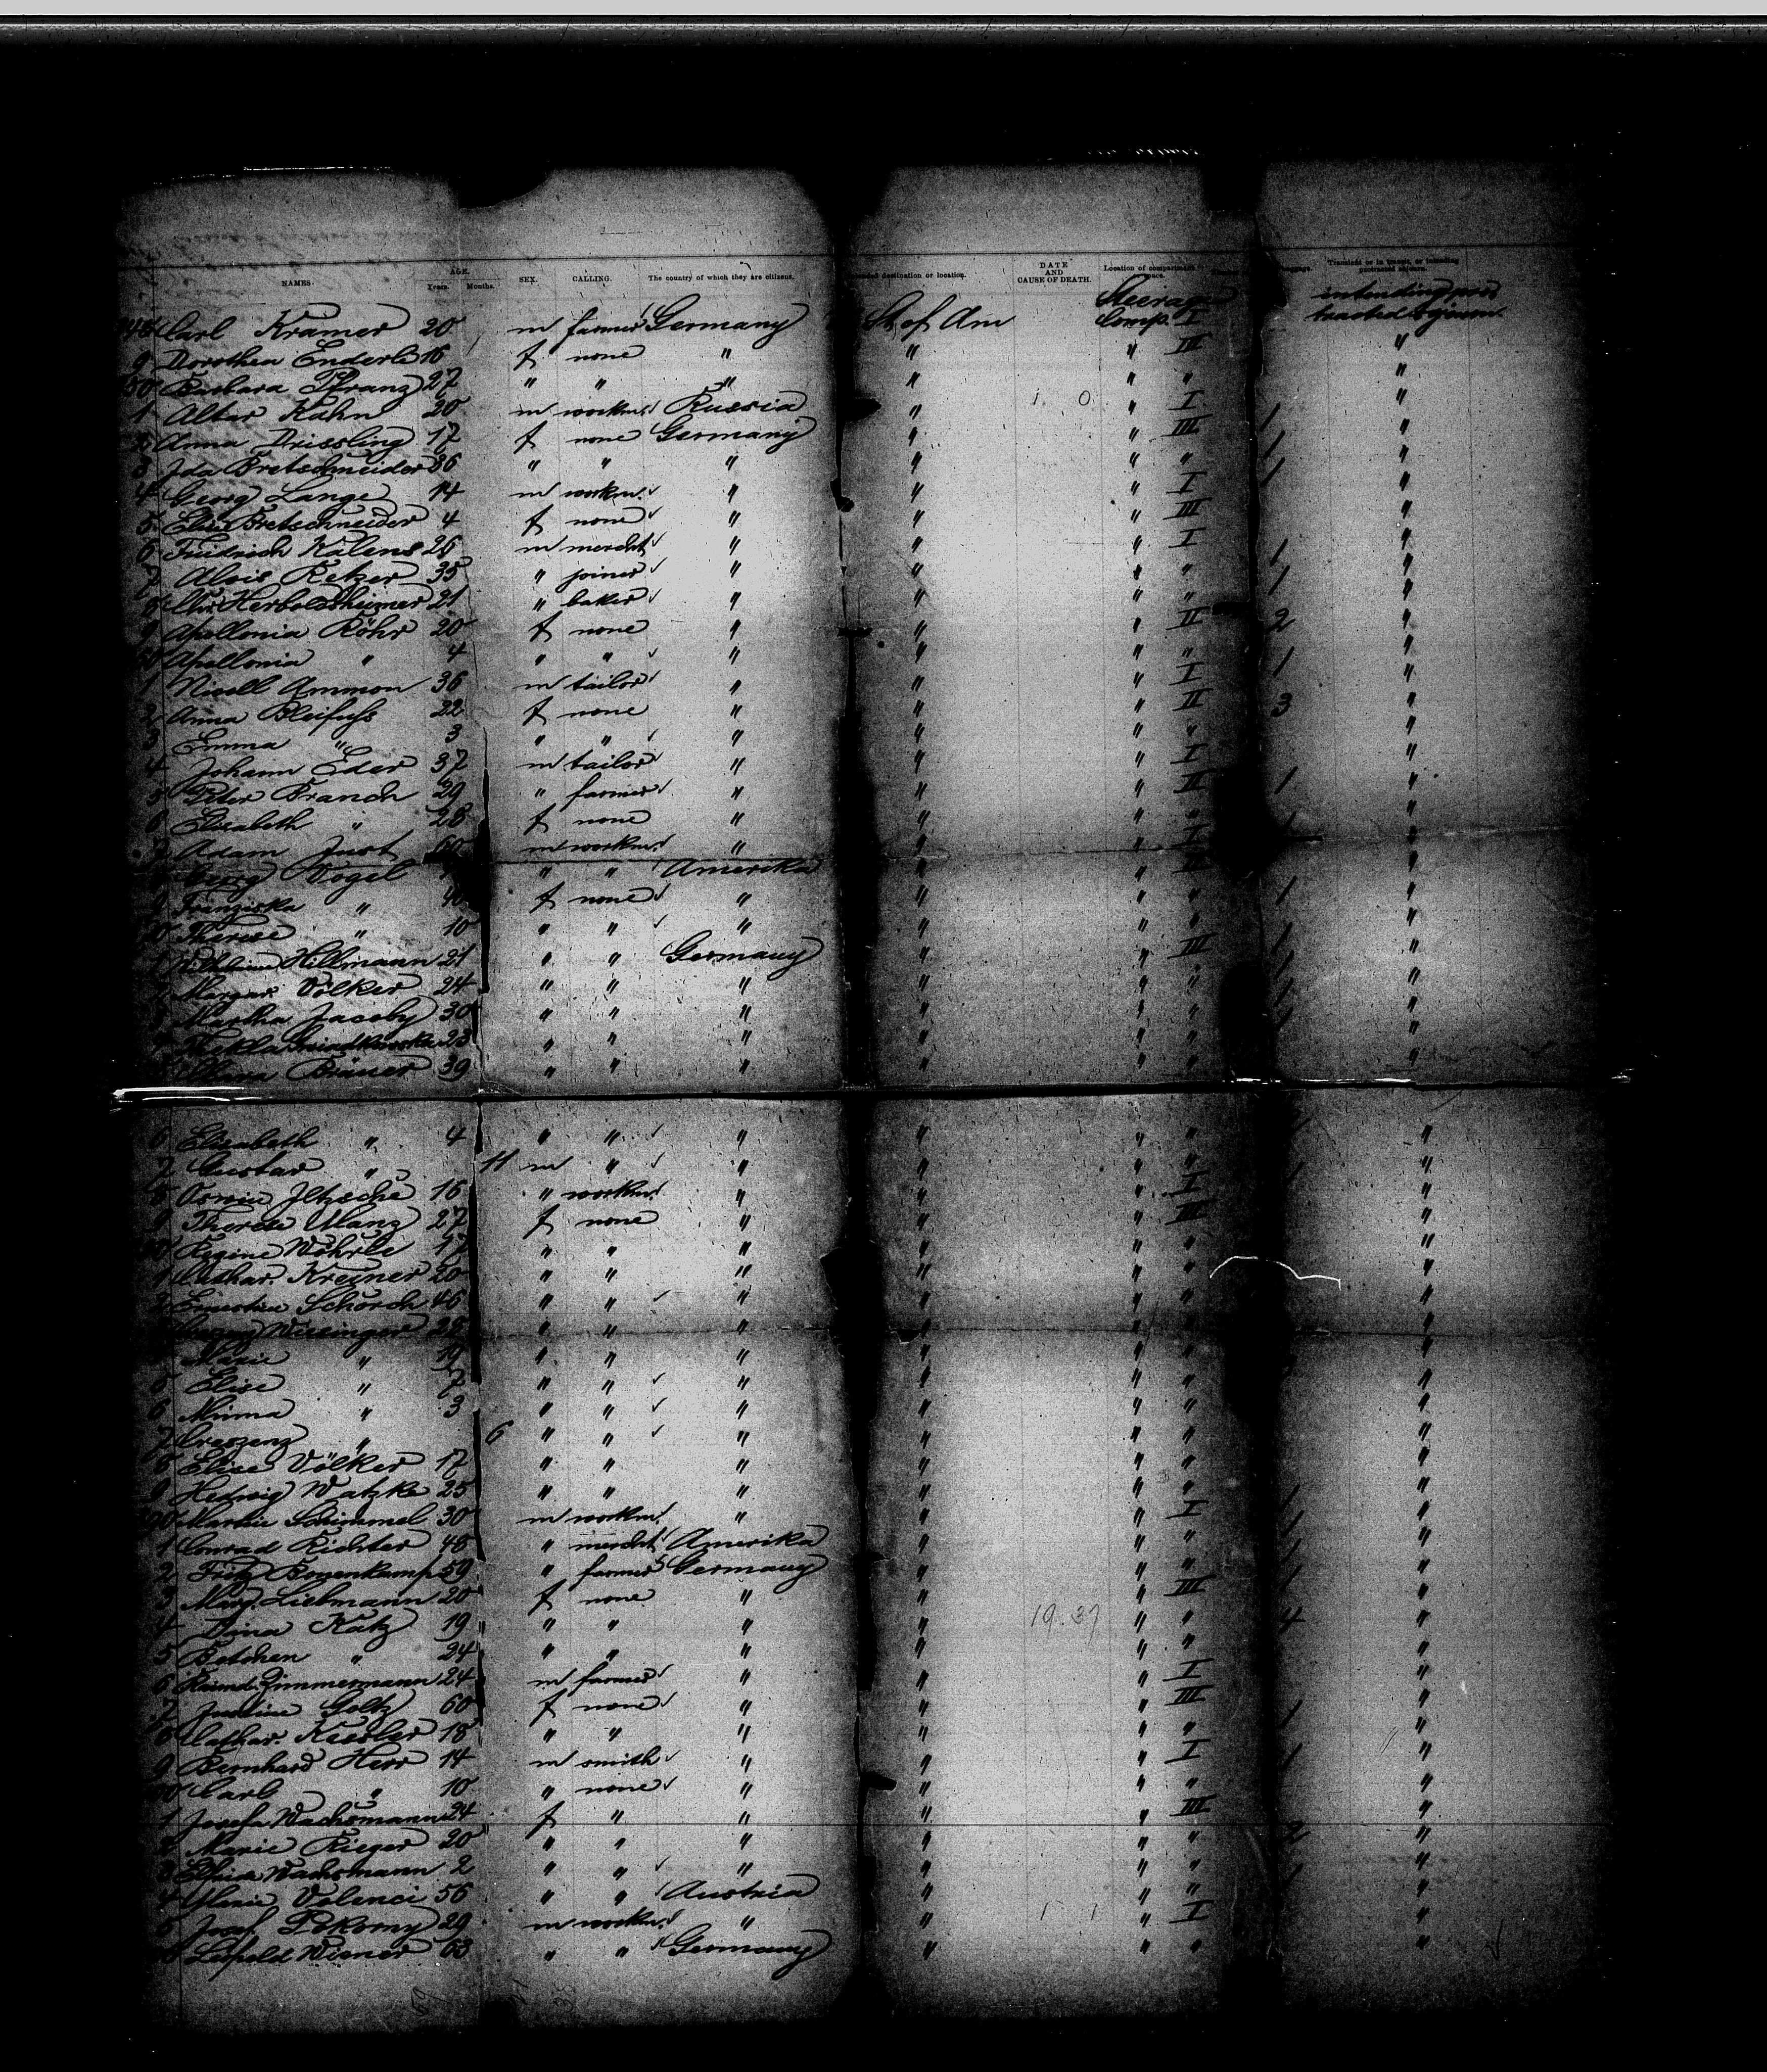 NAMES AGE. Years. Months. SEX. CALLING. The country of which they are citizens. destination or location. DATE AND CAUSE OF DEATH. Location of compartment Transient or in transit, or intending protracted sojourn.
Steerage intending pro-
Carl Kramer 20 m farmer Germany St of Am Comp. I tracted sojourn
9 Dorothea Enderle 16 f none " " " III "
50 Barbara Pfranz 27 " " " " " " "
1 Alter Kahn 20 m workm. Russia " 1 0 " I "
2 Anna Drissling 17 f none Germany " " III 1 "
3 Ida Bretschneider 36 " " " " " " 1 "
4 Georg Lange 14 m workm. " " " I 1 "
5 Elsa Bretschneider 4 f none " " " III "
6 Friedrich Kalens 26 m mercht " " " I "
7 Alois Retzer 35 " joiner " " " " 1 "
8 Chr. Herboldsheimer 21 " baker " " " " 1 "
9 Apollonia Röhr 20 f none " " " II 2 "
60 Apollonia " 4 " " " " " " "
1 Nicoll Ammon 36 m tailor " " " I 1 "
2 Anna Bleifuss 22 f none " " " II 3 "
3 Emma " 3 " " " " " " "
4 Johann Eder 37 m tailor " " " I "
5 Peter Branch 29 " farmer " " " II 1 "
6 Elisabeth " 28 f none " " " " "
7 Adam Just 60 m workm. " " " I 1 "
Georg Vogel " " Amerika " " II "
9 Franziska " f none " " " " 1 "
70 Therese " 10 " " " " " " "
1 Hillmann 21 " " Germany " " III 1 "
2 Margar. Völker 24 " " " " " " 1 "
3 Martha Jacoby 30 " " " " " " 1 "
4 Thekla 23 " " " " " " "
Bräuer 39 " " " " " " "
6 Elisabeth " 4 " " " " " " "
7 Gustav " 11 m " " " " " "
8 Oswin 16 " workm. " " " I "
9 Therese Manz 27 f none " " " III "
80 Regine Wöhrle 17 " " " " " " "
1 Cathar. Kreiner 20 " " " " " " "
2 Ernestine Schorch 46 " " " " " " "
Wiesinger 28 " " " " " " "
Marie " 19 " " " " " " "
5 Elise " 7 " " " " " " "
6 Minna " 3 " " " " " " "
7 Creszenz " 6 " " " " " " "
8 Elise Völker 17 " " " " " " "
9 Hedwig Watzke 25 " " " " " " 1 "
90 Schimmel 30 m workm. " " " I 1 "
1 Conrad Richter 48 " mercht Amerika " " " 1 "
2 Fritz Bonenkamp 59 " farmer Germany " " " 1 "
3 Marg. Liebmann 20 f none " " " III "
4 Dina Katz 19 " " " " 19.37 " " 4 "
5 Betchen " 24 " " " " " " "
6 Raimd. Zimmermann 24 m farmer " " " I "
7 Justine Goltz 60 f none " " " III 1 "
8 Cathar. Kessler 18 " " " " " " "
9 Bernhard Herr 14 m smith " " " I 1 "
Carl " 10 " none " " " " "
1 Josefa Wachsmann 24 f " " " " III "
2 Marie Rieger 20 " " " " " " 2 "
3 Wachsmann 2 " " " " " " "
4 Marie Valenci 56 " " Austria " " " "
5 Josef Pokorny 29 m workm. " " 1 1 " I "
Leopold Wiener 63 " " Germany " " " "